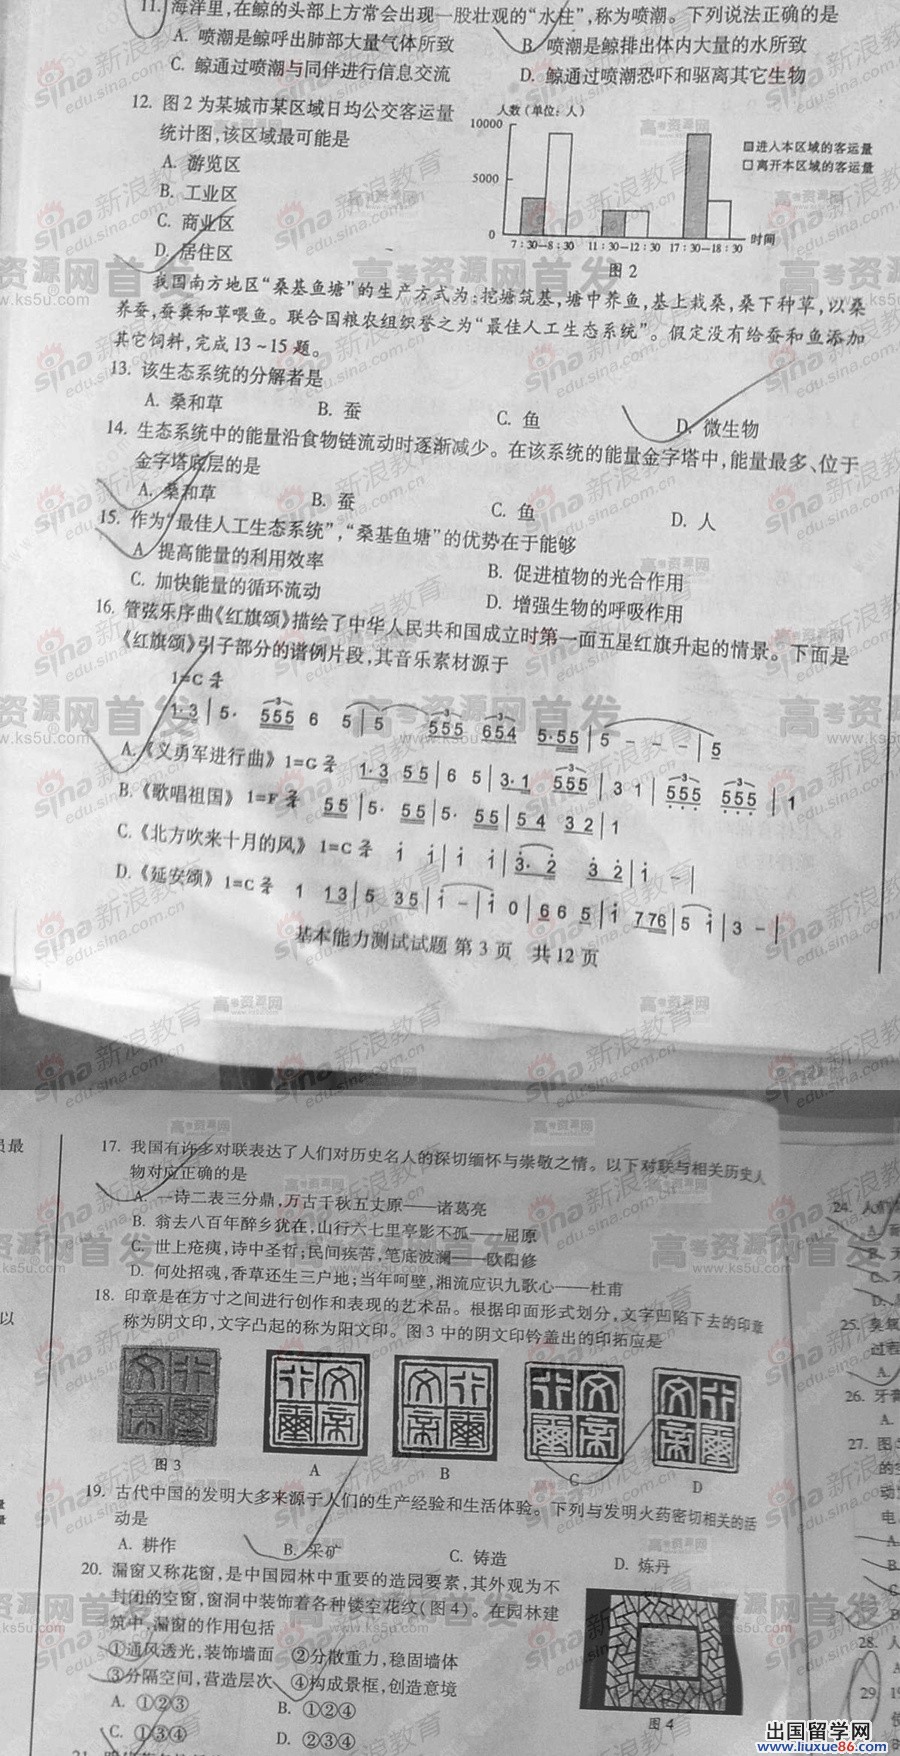 11. 海洋里,在鲸的头部上方常会出现一股壮观的“水柱”,称为喷潮。下列说法正确的是
A. 喷潮是鲸呼出肺部大量气体所致
B. 喷潮是鲸排出体内大量的水所致
C. 鲸通过喷潮与同伴进行信息交流
D. 鲸通过喷潮恐吓和驱离其它生物
12. 图2为某城市某区域日均公交客运量
统计图,该区域最可能是
A. 游览区
B. 工业区
C. 商业区
D. 居住区
人数(单位:人)
10000
5000
0
7:30—8:30 11:30—12:30 17:30—18:30 时间
进入本区域的客运量
离开本区域的客运量
图2
我国南方地区“桑基鱼塘”的生产方式为:挖塘筑基,塘中养鱼,基上栽桑,桑下种草,以桑
养蚕,蚕粪和草喂鱼。联合国粮农组织誉之为“最佳人工生态系统”。假定没有给蚕和鱼添加
其它饲料,完成13~15题。
13. 该生态系统的分解者是
A. 桑和草 B. 蚕 C. 鱼 D. 微生物
14. 生态系统中的能量沿食物链流动时逐渐减少。在该系统的能量金字塔中,能量最多、位于
金字塔底层的是
A. 桑和草 B. 蚕 C. 鱼 D. 人
15. 作为“最佳人工生态系统”,“桑基鱼塘”的优势在于能够
A 提高能量的利用效率 B. 促进植物的光合作用
C. 加快能量的循环流动 D. 增强生物的呼吸作用
16. 管弦乐序曲《红旗颂》描绘了中华人民共和国成立时第一面五星红旗升起的情景。下面是
《红旗颂》引子部分的谱例片段,其音乐素材源于
1=C
1·3 | 5· 555 6 5 | 5 555 654 5·55 | 5 - - - | 5
A.《义勇军进行曲》1=G 1·3 55 | 6 5 | 3·1 555 | 3 1 | 555 555 | 1
B.《歌唱祖国》1=F 55 | 5· 55 | 5· 55 | 54 32 | 1
C.《北方吹来十月的风》1=C i i | i i | 3·2 32 | i - |
D.《延安颂》1=C 1 13 | 5 35 | i - | i 0 | 66 5 | i 776 | 5 i | 3 - |
基本能力测试试题 第3页 共12页
17. 我国有许多对联表达了人们对历史名人的深切缅怀与崇敬之情。以下对联与相关历史人
物对应正确的是
A. 一诗二表三分鼎,万古千秋五丈原——诸葛亮
B. 翁去八百年醉乡犹在,山行六七里亭影不孤——屈原
C. 世上疮痍,诗中圣哲;民间疾苦,笔底波澜——欧阳修
D. 何处招魂,香草还生三户地;当年呵壁,湘流应识九歌心——杜甫
18. 印章是在方寸之间进行创作和表现的艺术品。根据印面形式划分,文字凹陷下去的印章
称为阴文印,文字凸起的称为阳文印。图3中的阴文印钤盖出的印拓应是
图3 A B C D
19. 古代中国的发明大多来源于人们的生产经验和生活体验。下列与发明火药密切相关的活
动是
A. 耕作 B. 采矿 C. 铸造 D. 炼丹
20. 漏窗又称花窗,是中国园林中重要的造园要素,其外观为不
封闭的空窗,窗洞中装饰着各种镂空花纹(图4)。在园林建
筑中,漏窗的作用包括
①通风透光,装饰墙面 ②分散重力,稳固墙体
③分隔空间,营造层次 ④构成景框,创造意境
A. ①②③ B. ①②④
C. ①③④ D. ②③④
图4
24. 人们
25. 臭氧
过程
A.
26. 牙膏
A.
27. 图
28. 人
29. 19
高考资源网首发
www.ks5u.com
sina新浪教育
edu.sina.com.cn
出国留学网
www.liuxue86.com